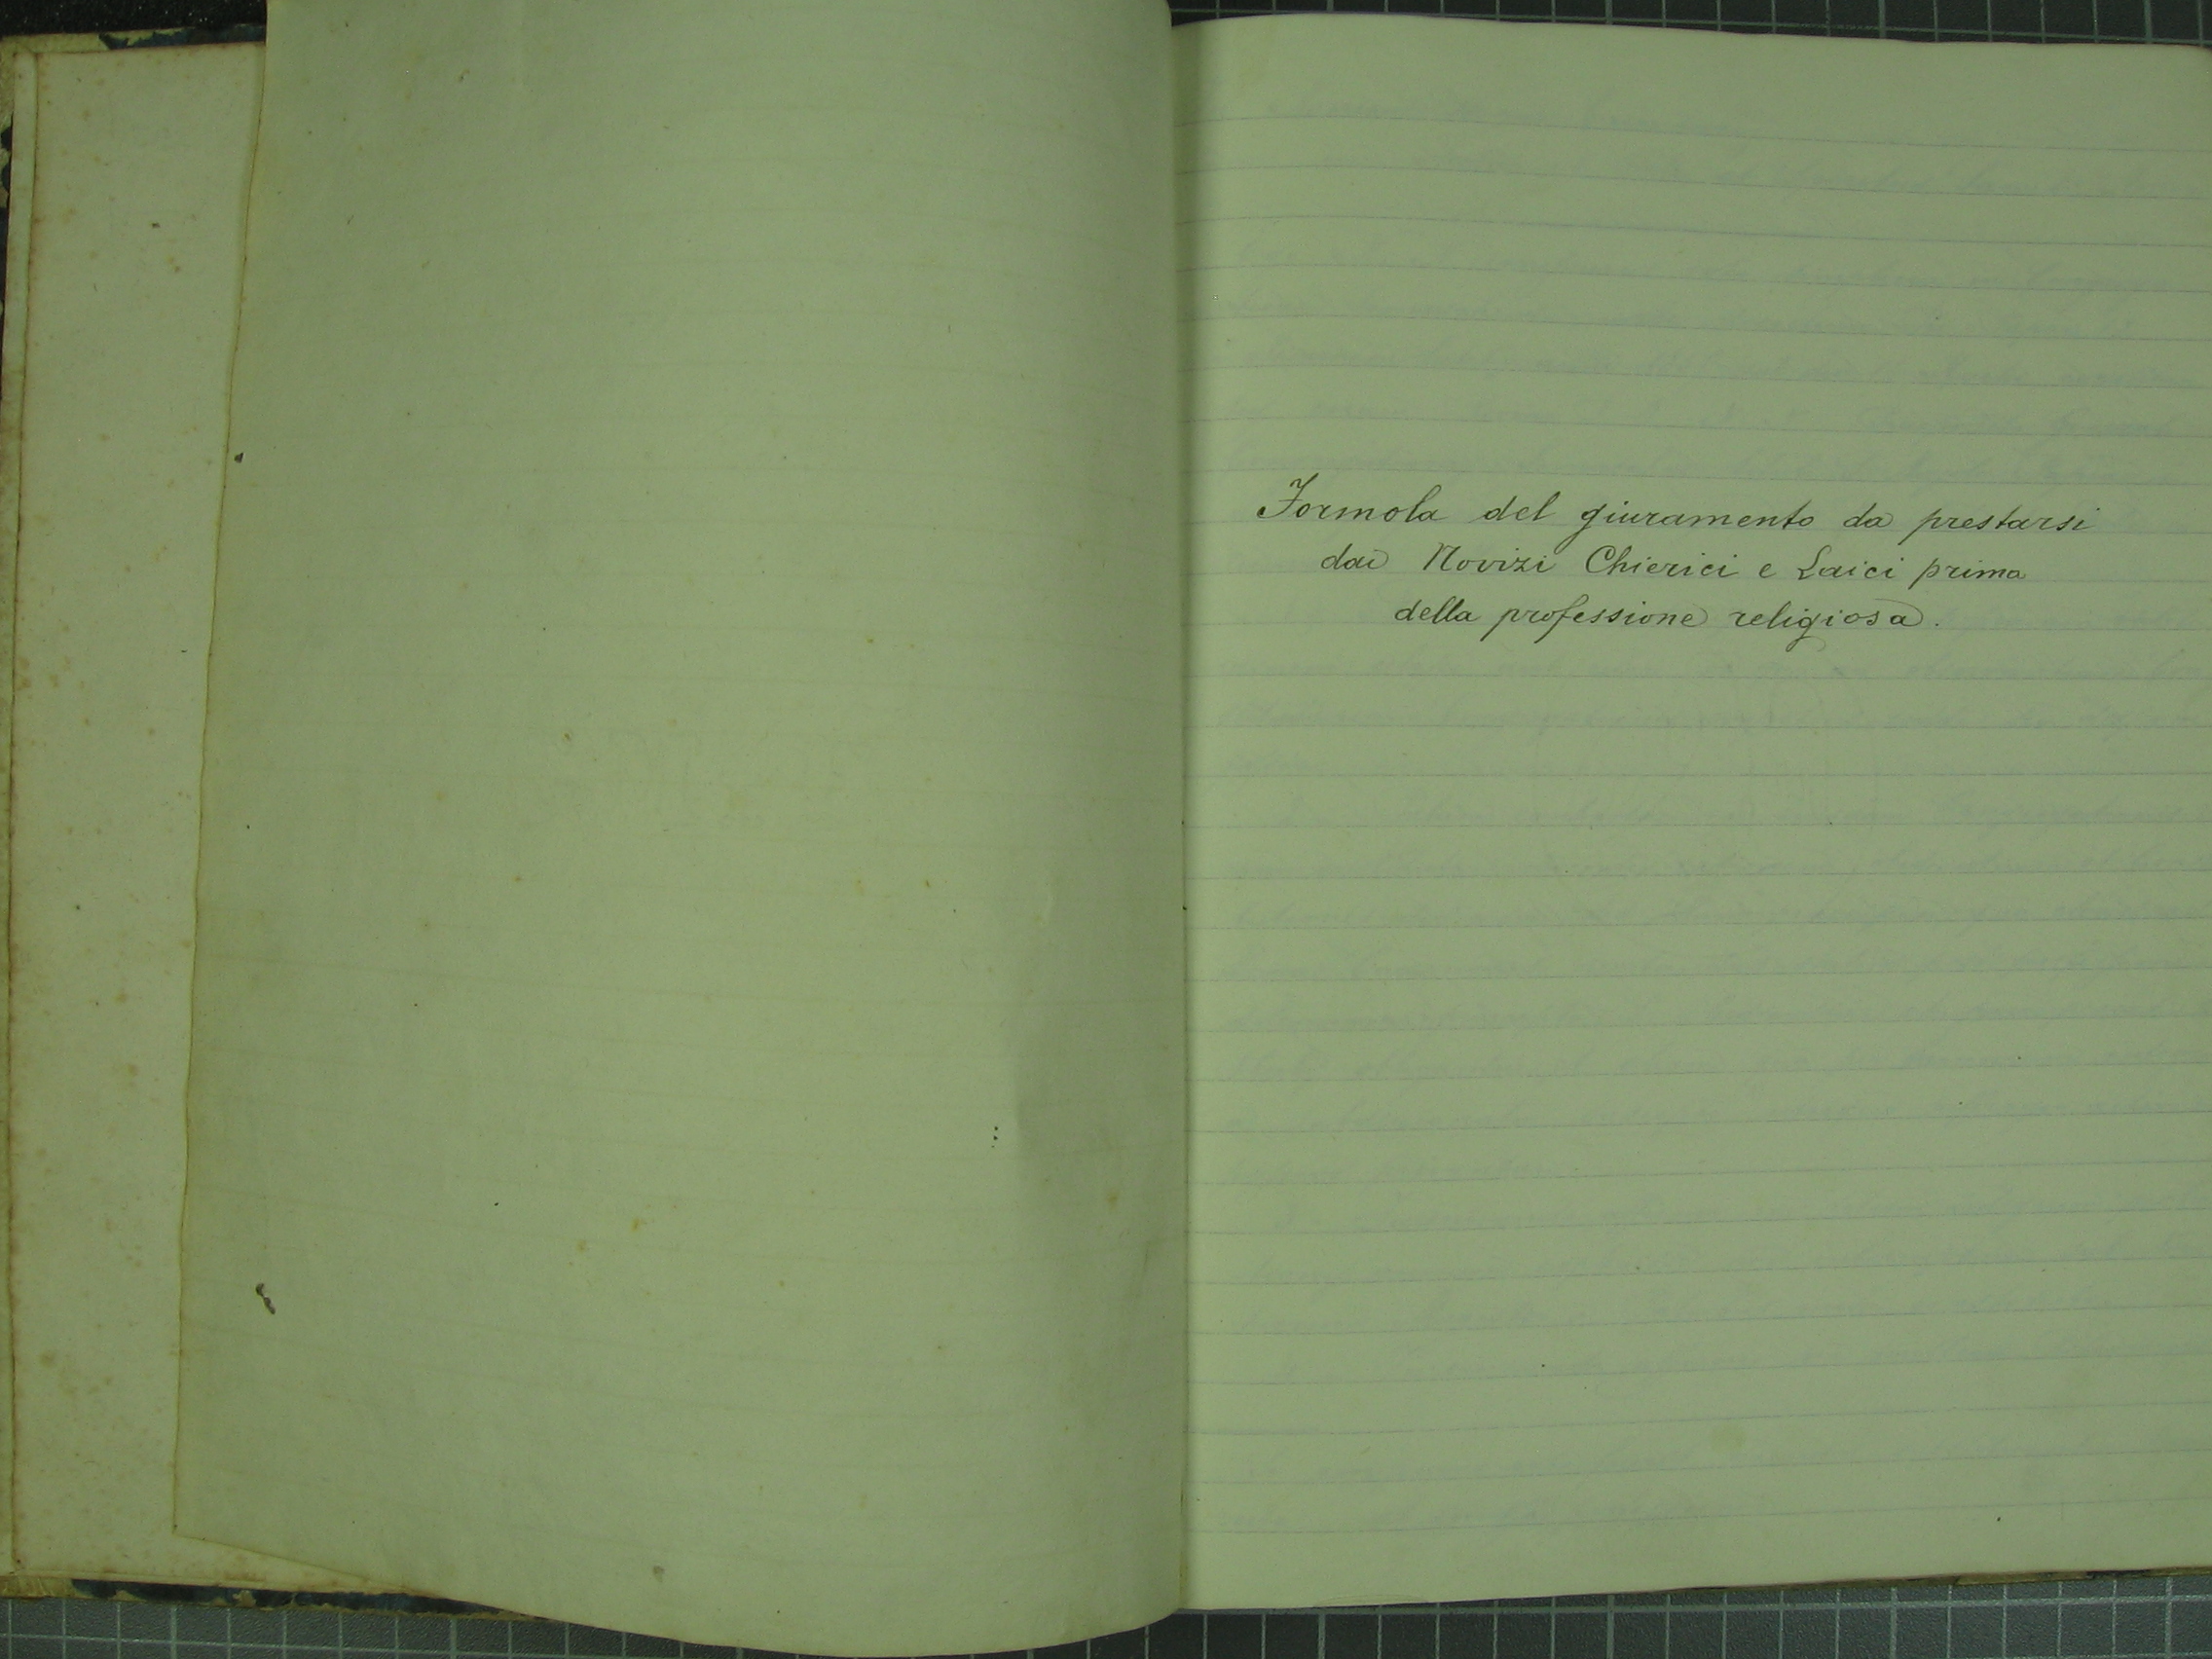 Formola del giuramento da prestarsi
dai Novizi Chierici e Laici prima
della professione religiosa.